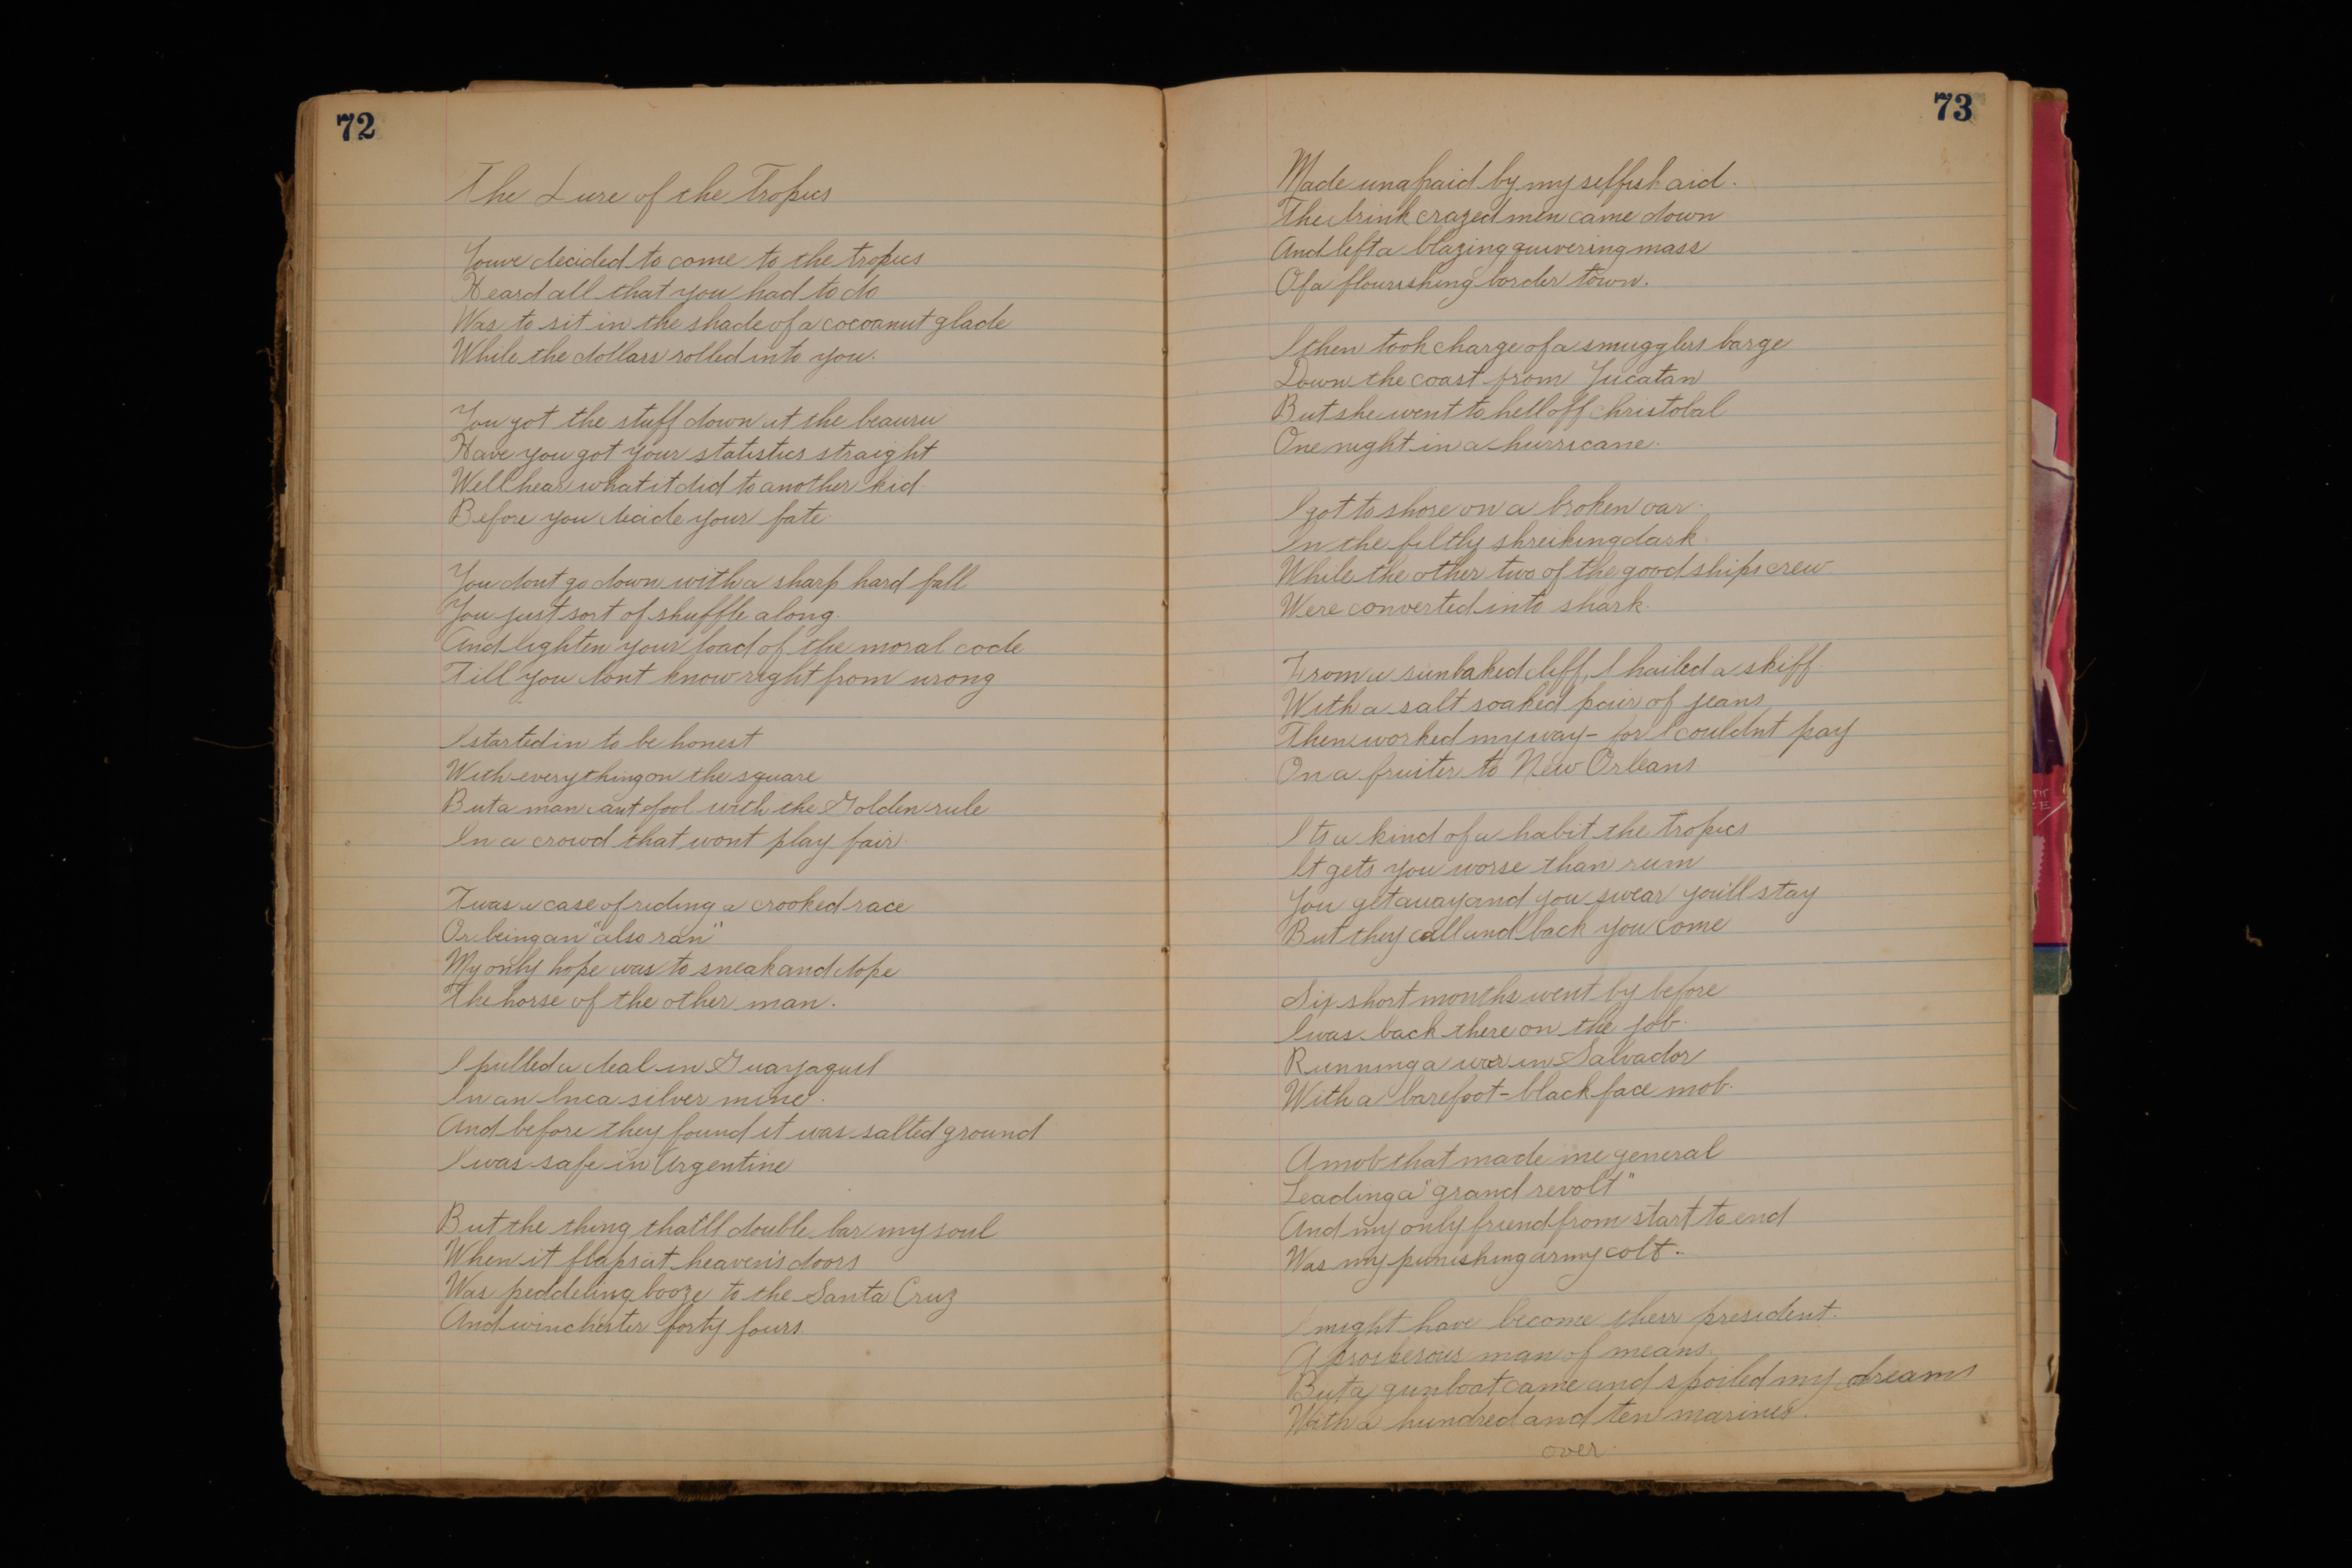 72
The Lure of the Tropics
Youve decided to come to the tropics
Heard all that you had to do
Was to sit in the shade of a cocoanut glade
While the dollars rolled into you.
You got the stuff down at the beauru
Have you got your statistics straight
Well hear what it did to another kid
Before you decide your fate
You dont go down with a sharp hard fall
You just sort of shuffle along.
And lighten your load of the moral code
Till you dont know right from wrong
I started in to be honest
With everything on the square
But a man cant fool with the Golden rule
In a crowd that wont play fair.
Twas a case of riding a crooked race
Or being an "also ran"
My only hope was to sneak and dope
The horse of the other man.
I pulled a deal in Guayaquil
In an Inca silver mine.
And before they found it was salted ground
I was safe in Argentine
But the thing that'll double bar my soul
When it flaps at heaven's doors
Was peddeling booze to the Santa Cruz
And winchester forty fours.
73
Made unafraid by my selfish aid.
The drink crazed men came down
And left a blazing quivering mass
Of a flourishing border town.
I then took charge of a smugglers barge
Down the coast from Yucatan
But she went to hell off christobal
One night in a hurricane.
I got to shore on a broken oar.
In the filthy shreiking dark.
While the other two of the good ships crew
Were converted into shark.
From a sunbaked cliff, I hailed a skiff.
With a salt soaked pair of jeans
Then worked my way - for I couldnt pay
On a fruiter to New Orleans
Its a kind of a habit the tropics
It gets you worse than rum
You get away and you swear you'll stay
But they call and back you come
Six short months went by before
I was back there on the job.
Running a war in Salvador
With a barefoot - black face mob.
A mob that made me general
Leading a "grand revolt"
And my only friend from start to end
Was my punishing army colt.
I might have become their president.
A prosperous man of means.
But a gunboat came and spoiled my dreams
With a hundred and ten marines.
over